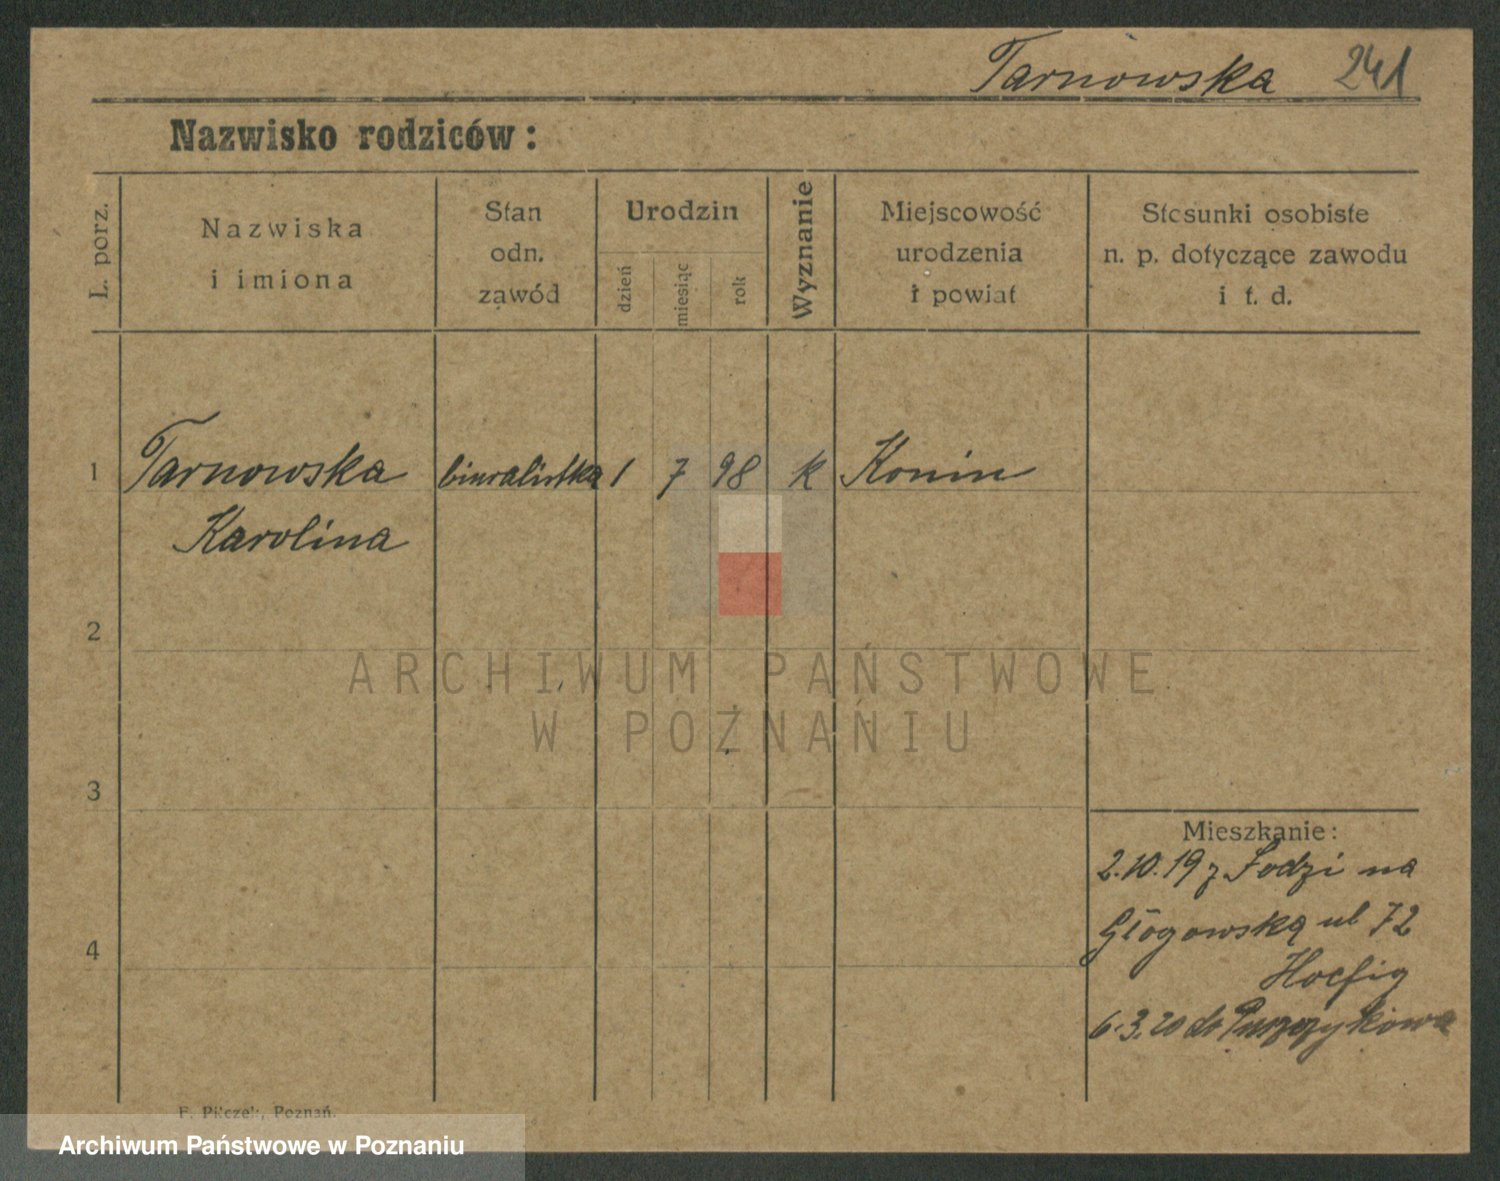 Tarnowska 241
Nazwisko rodziców:
L. porz.
Nazwiska
i imiona
Stan
odn.
zawód
Urodzin
dzień
miesiąc
rok
Wyznanie
Miejscowość
urodzenia
i powiat
Stosunki osobiste
n. p. dotyczące zawodu
i t. d.
1 Tarnowska biuralistka 1 7 98 k Konin
Karolina
2
3
4
ARCHIWUM PAŃSTWOWE
W POZNANIU
Mieszkanie:
2.10.19 z Łodzi na
Głogowską ul 72
6.3.20 do Puszczykowa
F. Pilczek, Poznań.
Archiwum Państwowe w Poznaniu